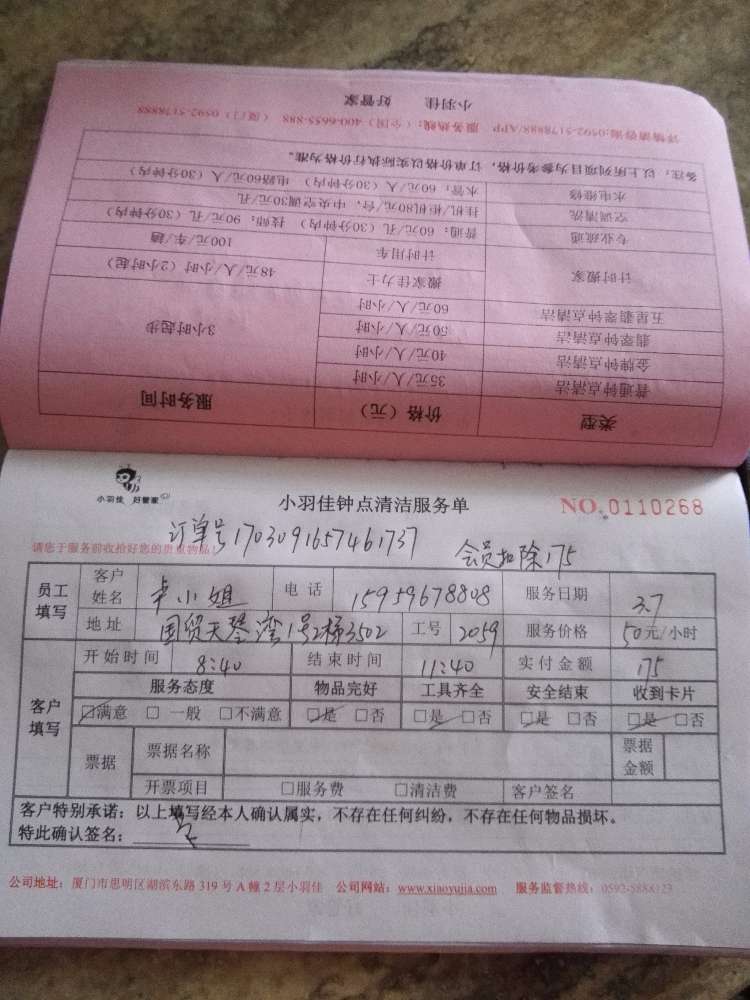 小羽佳 好管家
详情请咨询:0592-5178888/APP 服务热线:(全国)400-6655-888 (厦门)0592-5178888
备注:以上所列项目为参考价格,订单价格以实际执行价格为准。
水电维修 水管:60元/人(30分钟内) 电路60元/人(30分钟内)
空调清洗 挂机/柜机80元/台,中央空调30元/孔
专业疏通 普通:60元/孔(30分钟内) 技师:90元/孔(30分钟内)
计时搬家 计时用车 100元/车/趟
搬家佳力士 48元/人/小时(2小时起)
五星翡翠钟点清洁 60元/人/小时 3小时起步
翡翠钟点清洁 50元/人/小时
金牌钟点清洁 40元/人/小时
普通钟点清洁 35元/人/小时
类型 价格(元) 服务时间
小羽佳 好管家
小羽佳钟点清洁服务单 NO.0110268
订单号1703091657461737
请您于服务前收拾好您的贵重物品! 会员扣除175
员工填写 客户姓名 卓小姐 电话 15959678808 服务日期 3.7
地址 国贸天琴湾1号2梯3502 工号 2059 服务价格 50元/小时
客户填写 开始时间 8:40 结束时间 11:40 实付金额 175
服务态度 物品完好 工具齐全 安全结束 收到卡片
☑满意 □一般 □不满意 ☑是 □否 ☑是 □否 ☑是 □否 ☑是 □否
票据 票据名称 票据金额
开票项目 □服务费 □清洁费 客户签名
客户特别承诺:以上填写经本人确认属实,不存在任何纠纷,不存在任何物品损坏。
特此确认签名:
公司地址:厦门市思明区湖滨东路319号A幢2层小羽佳 公司网站:www.xiaoyujia.com 服务监督热线:0592-5888123